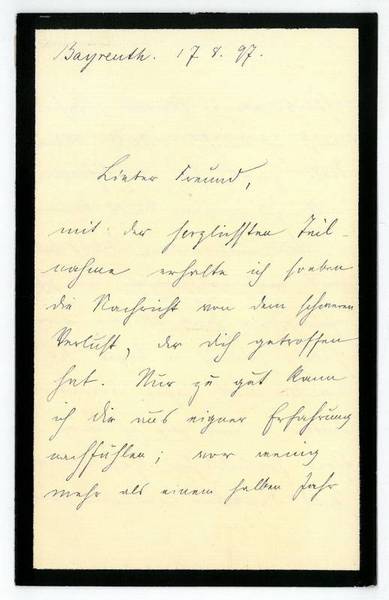 Bayreuth. 17.8.97.
Lieber Freund,
mit der herzlichsten Teil-
nahme erhalte ich soeben
die Nachricht von dem schweren
Verlust, der dich getroffen
hat. Nur zu gut kann
ich dir aus eigner Erfahrung
nachfühlen; vor wenig
mehr als einem halben Jahr